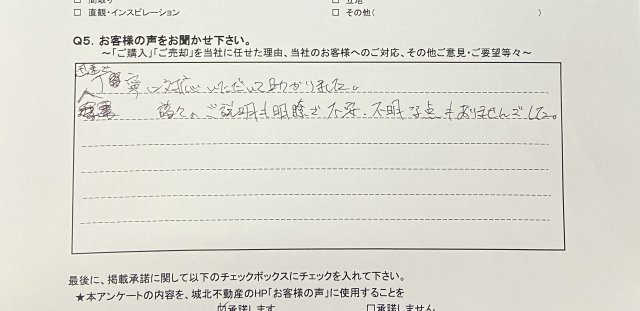 □ 間取り □ 立地
□ 直観・インスピレーション □ その他( )
Q5. お客様の声をお聞かせ下さい。
～「ご購入」「ご売却」を当社に任せた理由、当社のお客様へのご対応、その他ご意見・ご要望等々～
迅速で
丁寧に対応いただいて助かりました。
諸々のご説明も明瞭で不安、不明な点もありませんでした。
最後に、掲載承諾に関して以下のチェックボックスにチェックを入れて下さい。
★本アンケートの内容を、城北不動産のHP「お客様の声」に使用することを
☑承諾します □承諾しません